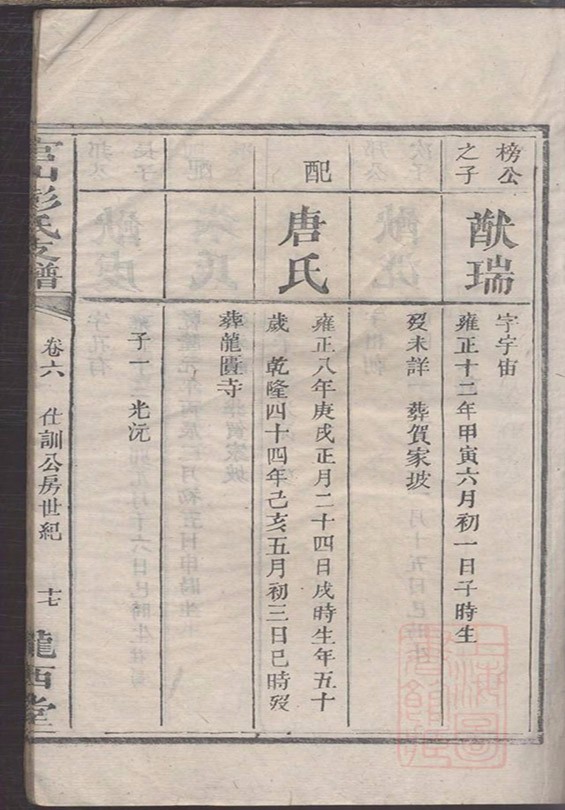 榜公
之子
猷瑞
字宇宙
雍正十二年甲寅六月初一日子時生
歿未詳 葬賀家坡
配
唐氏
雍正八年庚戌正月二十四日戌時生年五十
歲 乾隆四十四年己亥五月初三日巳時歿
葬龍匱寺
子一 光沅
官山彭氏支譜
卷六 仕訓公房世紀 十七
隴西堂